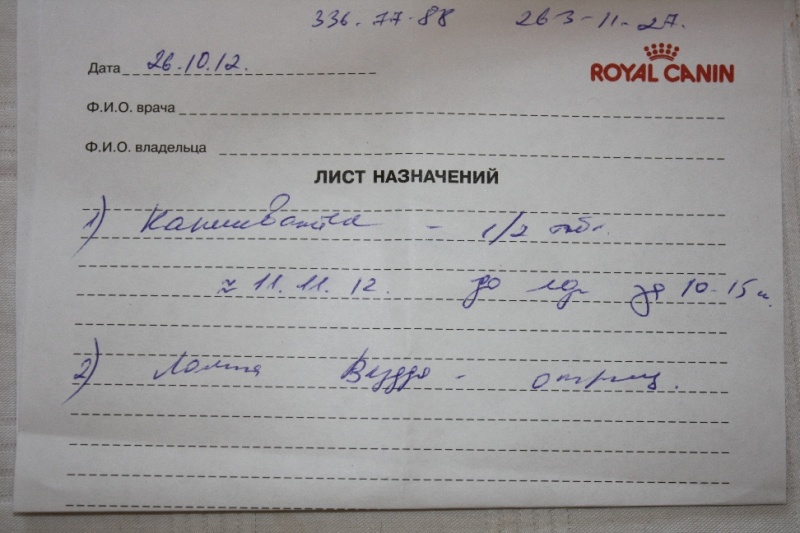 336-77-88 263-11-27.
Дата 26.10.12.
ROYAL CANIN
Ф.И.О. врача
Ф.И.О. владельца
ЛИСТ НАЗНАЧЕНИЙ
1) Каниквантел - 1/2 табл.
≈ 11.11.12. до за 10-15
2) Лампа Вудда - отриц.